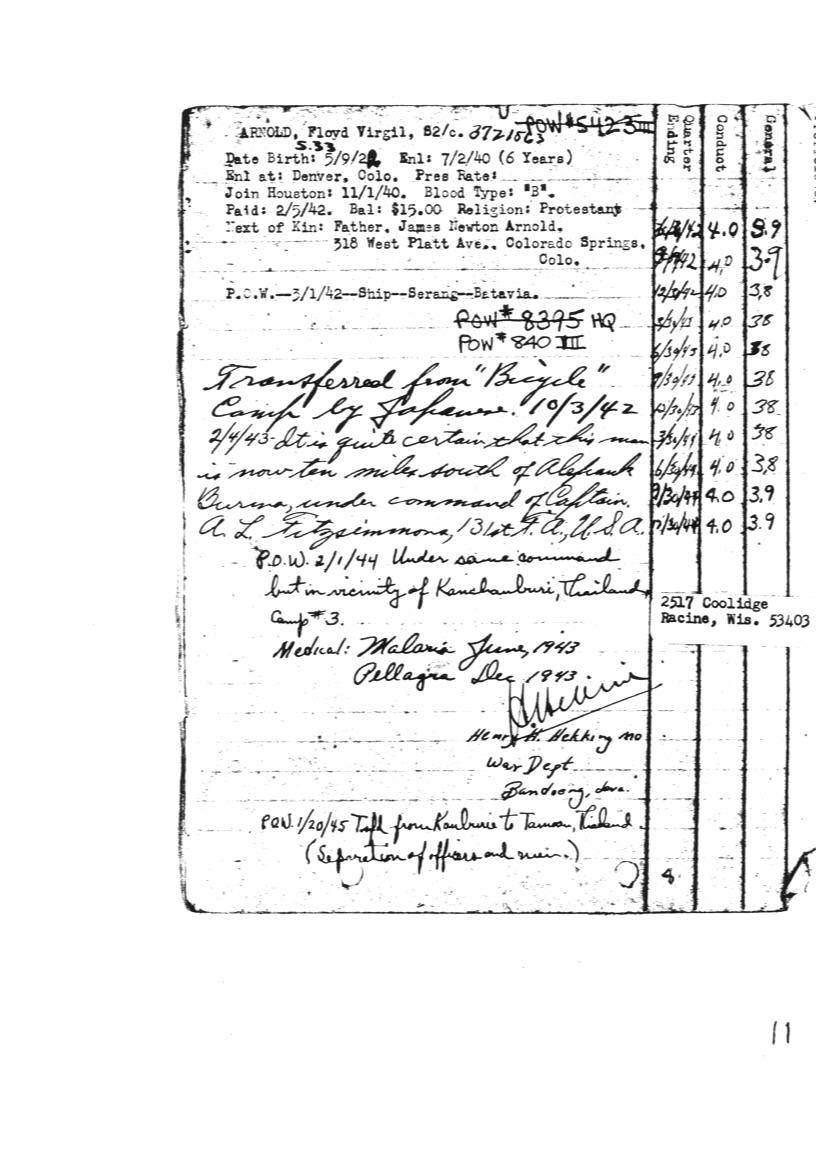 U POW #5423 III
ARNOLD, Floyd Virgil, S2/c. 3721063
S.33
Date Birth: 5/9/22 Enl: 7/2/40 (6 Years)
Enl at: Denver, Colo. Pres Rate:
Join Houston: 11/1/40. Blood Type: "B".
Paid: 2/5/42. Bal: $15.00 Religion: Protestant
Next of Kin: Father, James Newton Arnold.
318 West Platt Ave., Colorado Springs,
Colo.
P.O.W.--3/1/42--Ship--Serang--Batavia.
POW# 8395 HQ
POW# 840 III
Transferred from "Bicycle"
Camp by Japanese. 10/3/42
2/4/43- It is quite certain that this man
is now ten miles south of
Burma, under command of Captain
A. L. Fitzsimmons, 131st F.A., U.S.A.
P.O.W. 2/1/44 Under same command
but in vicinity of Kanchanburi, Thailand,
Camp #3.
Medical: Malaria June, 1943
Pellagra Dec 1943
Henry H. Hekking MD
War Dept
Bandoong, Java.
POW. 1/20/45 Tsfd from Kanburie to Tamuan, Thailand
(Separation of officers and men.)
Quarter Ending Conduct General
4.0 3.9
4.0 3.9
4.0 3.8
4.0 38
6/30/43 4.0 38
9/30/43 4.0 38
12/30/43 4.0 38
3/30/44 4.0 38
6/30/44 4.0 3.8
9/30/44 4.0 3.9
12/30/44 4.0 3.9
2517 Coolidge
Racine, Wis. 53403
8
11